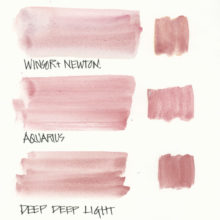 WINSOR + NEWTON
AQUARIUS
DEEP DEEP LIGHT